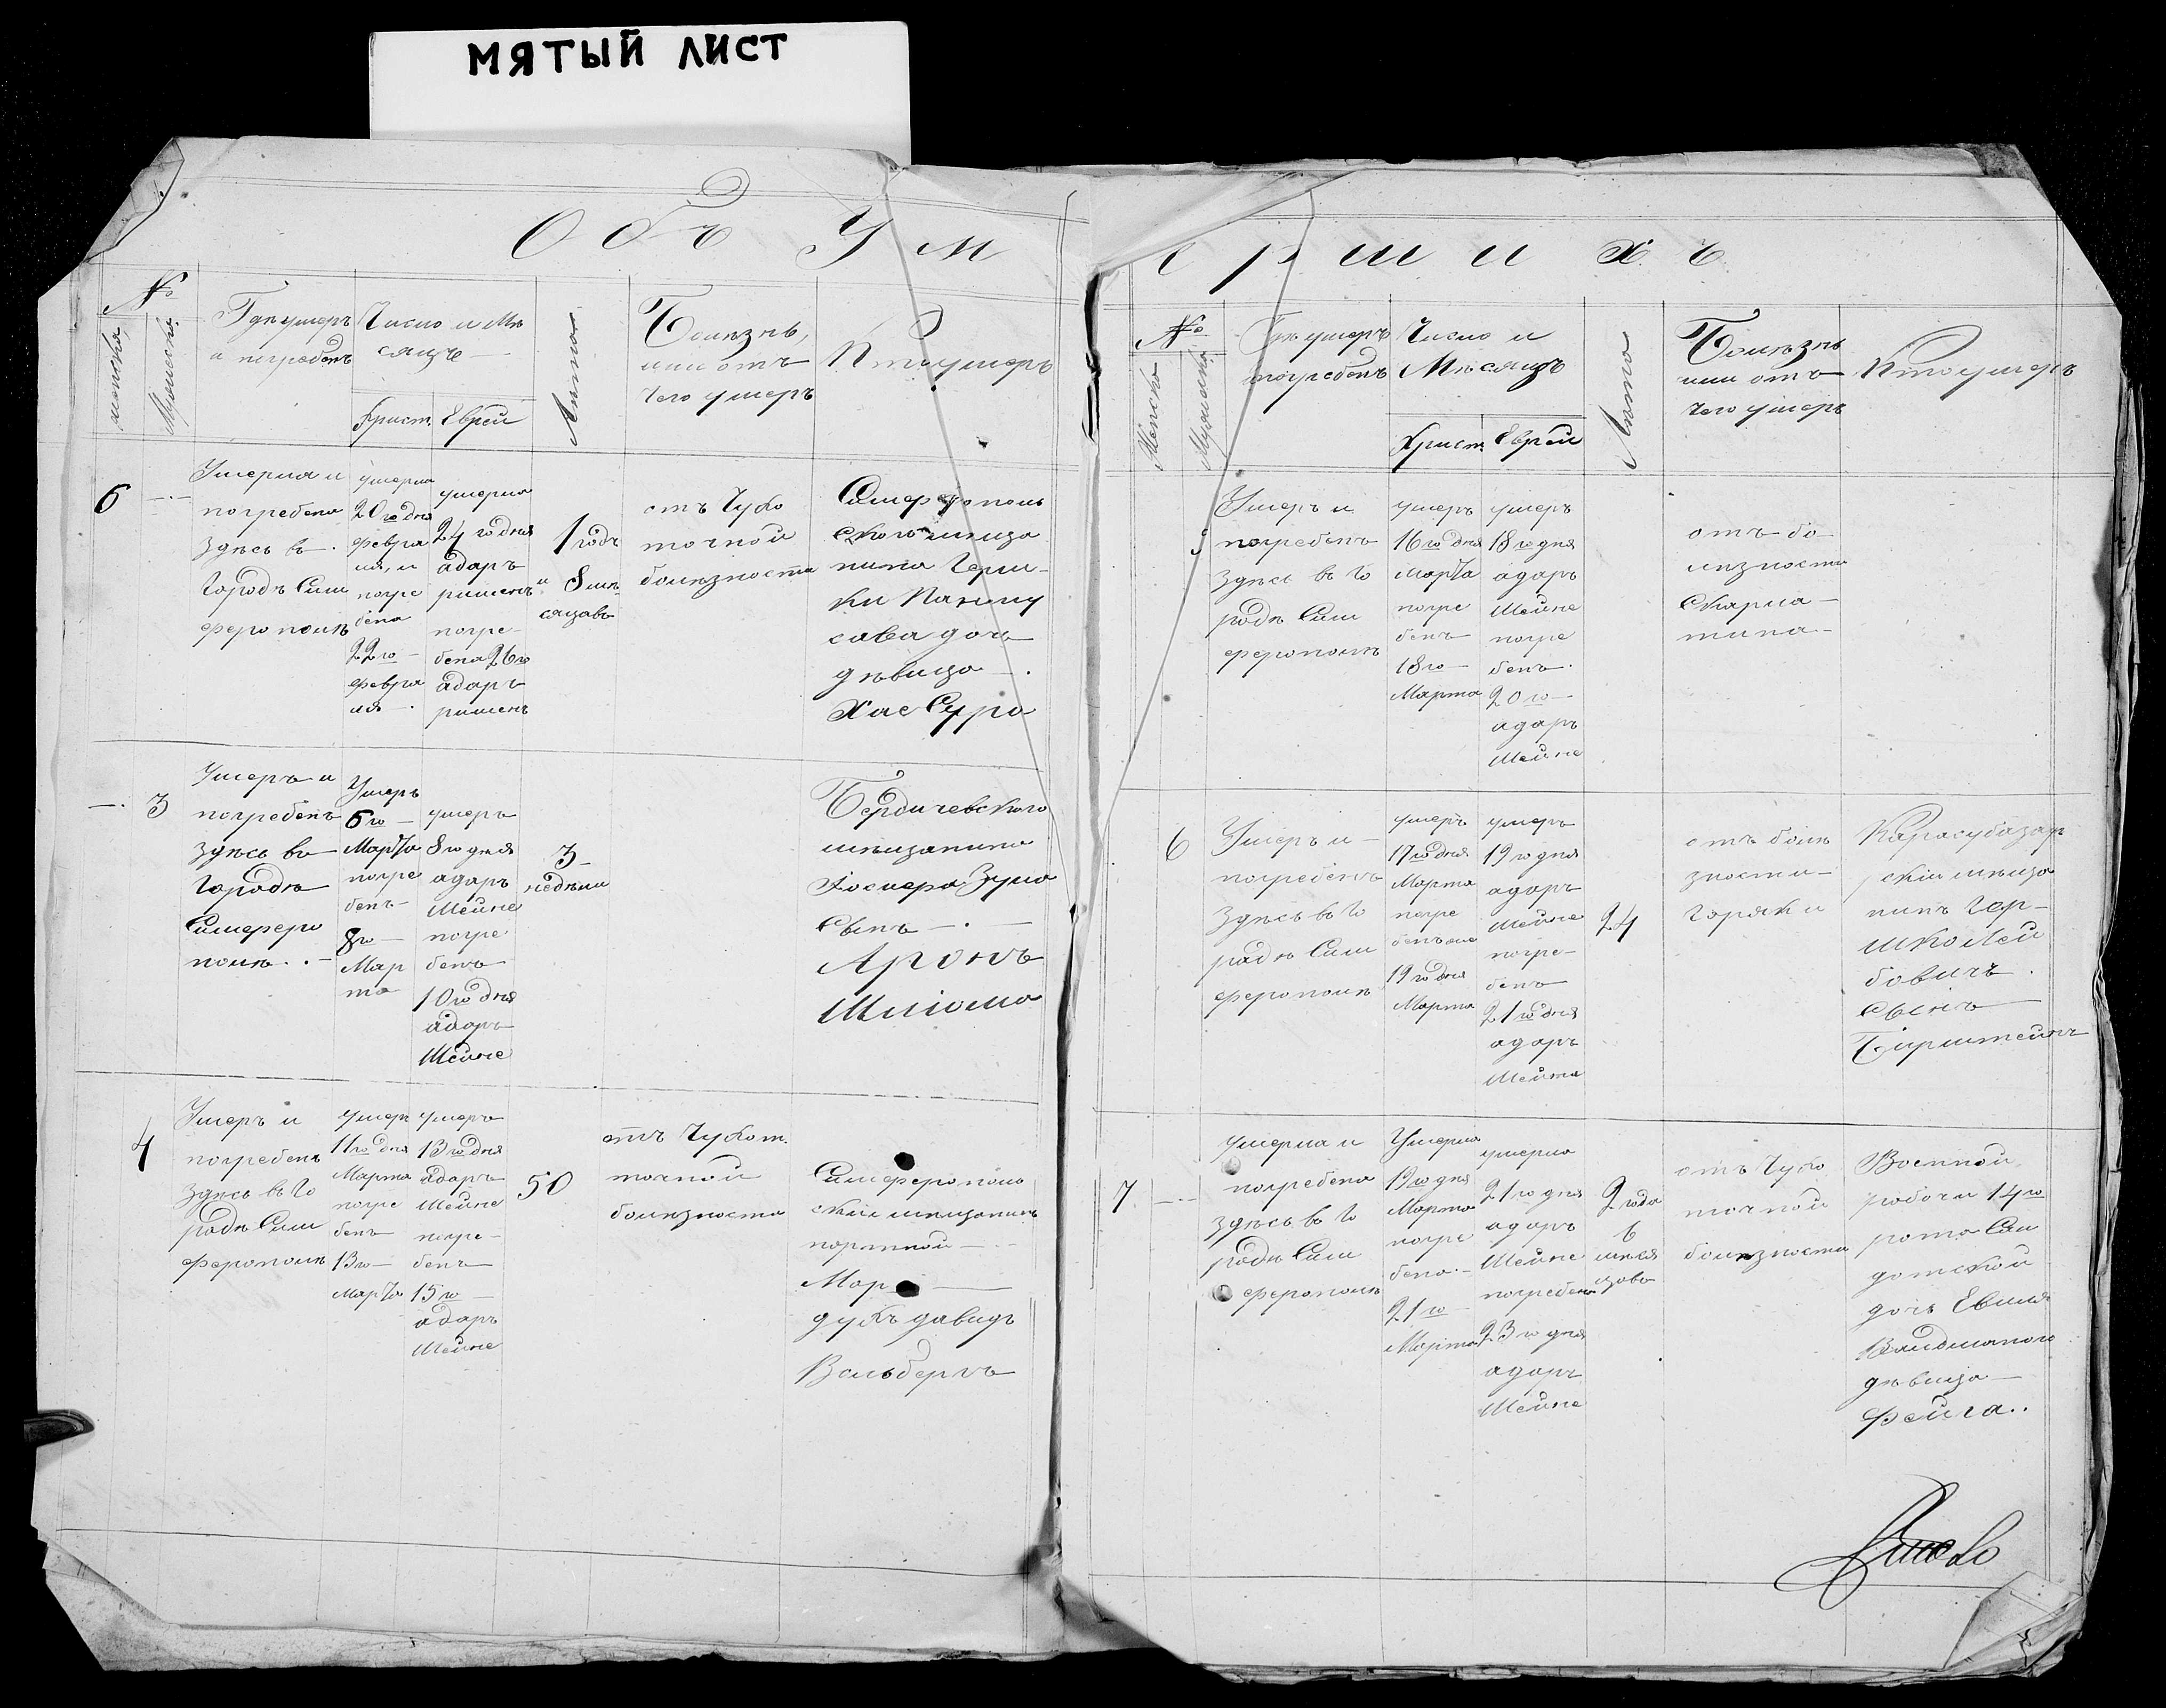 МЯТЫЙ ЛИСТ
Объ Ум
№
женско
Мужеско
Где умеръ
и погребенъ
Число и Мѣ
сяцъ
Христ.
Еврей
Лѣта
Болѣзнь,
или отъ
чего умеръ
Кто умеръ
6
Умерла и
погребена
здѣсь въ
Городѣ Сим
ферополѣ
умерла
20го дня
февра
ля, и
погре
бена
22го
февра
ля
умерла
24 го дня
адаръ
ришенъ
погре-
бена 26го
адаръ
ришенъ
1 годъ
и 8 мѣ
сяцовъ
отъ Чухо
точной
болѣзности
Симферополь
скаго мѣща
нина Герш-
ки
сава дочь
дѣвица
Хае Сура
3
Умеръ и
погребенъ
здѣсь въ
Городѣ
Симферо
полѣ
Умеръ
6го
Марта
погре
бенъ
8го
Мар
та
умеръ
8го дня
адаръ
Шейне
погре
бенъ
10го дня
адаръ
Шейне
3
недѣли
Бердичевского
мѣщанина
сынъ
Аронъ
Шліома
4
Умеръ и
погребенъ
здѣсь въ Го
родѣ Сим
ферополѣ
умеръ
11го дня
Марта
погре
бенъ
13го
Марта
умеръ
13го дня
адаръ
Шейне
погре-
бенъ
15го
адаръ
Шейне
50
отъ Чухот.
точной
болѣзности
Симферополь
скій мѣщанинъ
портной
Мор
духъ давидъ
Вольбергъ
ершихъ
№
Женско
Мужеско
Где умеръ
погребенъ
Число и
Мѣсяцъ
Христ.
Еврей
Лѣта
Болѣзнь
или отъ
чего умеръ
Кто умеръ
Умеръ и
погребенъ
здѣсь въ Го
родѣ Сим
ферополѣ
умеръ
16го дня
Марта
погре
бенъ
18го
Марта
умеръ
18го дня
адаръ
Шейне
погре
бенъ
20го
адаръ
Шейне
отъ бо
лѣзности
Скарла-
тина
6
Умеръ и
погребенъ
здѣсь въ Го
родѣ Сим
ферополѣ
умеръ
17го дня
Марта
погре
19го дня
Марта
умеръ
19го дня
адаръ
Шейне
погре-
бенъ
21го дня
адаръ
24
отъ болѣ
зности
горячки
Карасубазар
скій мѣща
нинъ Гер-
шко Лей
бовичъ
сынъ
7
умерла и
погребена
здѣсь въ Го
родѣ Сим
ферополѣ
Умерла
19го дня
Марта
погре
бена
21го
Марта
умерла
21го дня
адаръ
Шейне
погребена
23го дня
адаръ
Шейне
2 года
6
мѣся
цовъ
отъ Чухо
точной
болѣзности
Военной
рабочи 14го
дочь
дѣвица
Фейга